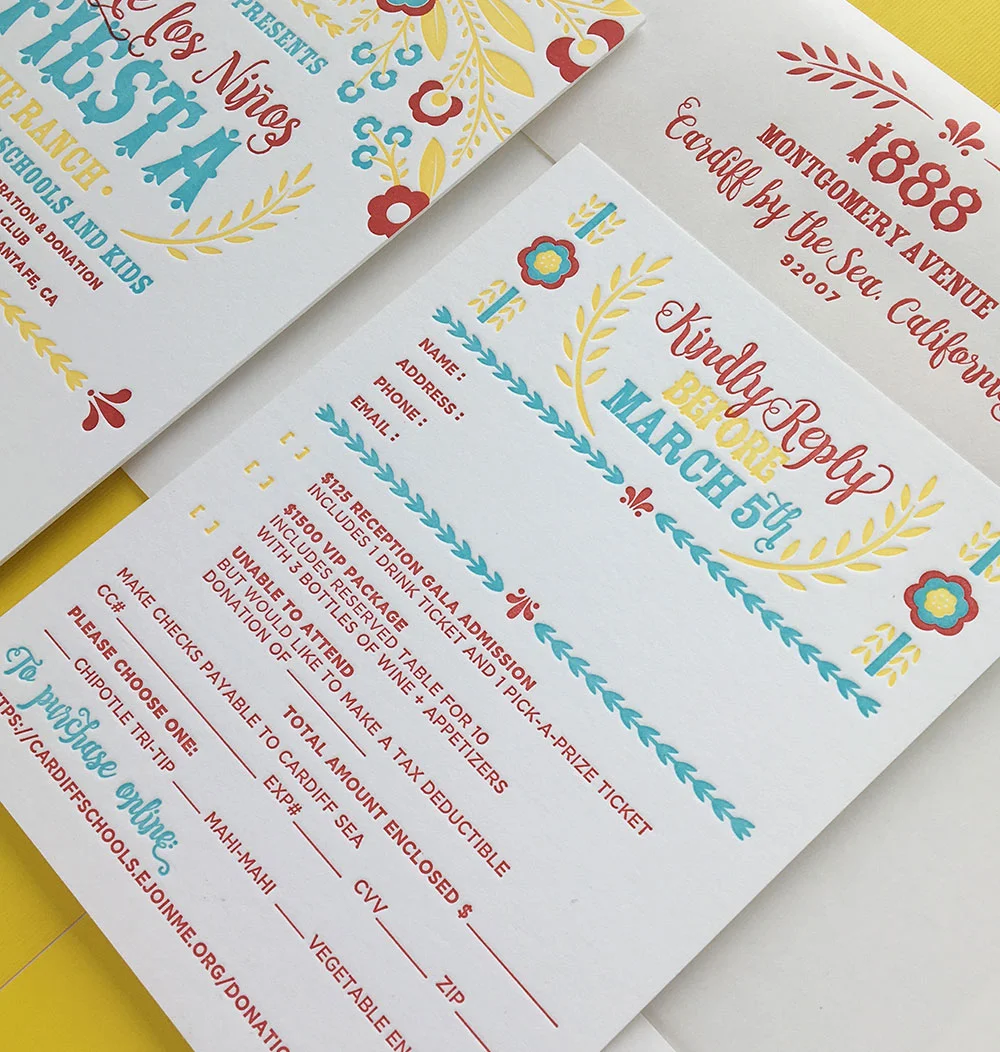 PRESENTS
de los Niños
FIESTA
RANCH •
SCHOOLS AND KIDS
& DONATION
CLUB
SANTA FE, CA
1888
MONTGOMERY AVENUE
Cardiff by the Sea, California
92007
Kindly Reply
BEFORE
MARCH 5th
NAME :
ADDRESS :
PHONE :
EMAIL :
[ ] $125 RECEPTION GALA ADMISSION
INCLUDES 1 DRINK TICKET AND 1 PICK-A-PRIZE TICKET
[ ] $1500 VIP PACKAGE
INCLUDES RESERVED TABLE FOR 10
WITH 3 BOTTLES OF WINE + APPETIZERS
[ ] UNABLE TO ATTEND
BUT WOULD LIKE TO MAKE A TAX DEDUCTIBLE
DONATION OF ____________
TOTAL AMOUNT ENCLOSED $ ____________
MAKE CHECKS PAYABLE TO CARDIFF SEA
CC# ____________ EXP# ______ CVV ______ ZIP ______
PLEASE CHOOSE ONE:
____ CHIPOTLE TRI-TIP ____ MAHI-MAHI ____ VEGETABLE EN
To purchase online:
TTPS://CARDIFFSCHOOLS.EJOINME.ORG/DONATIO